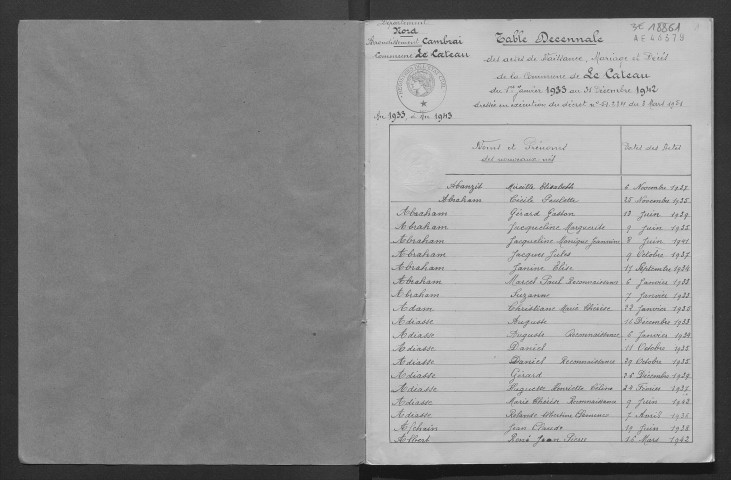 Département
Nord
Arrondissement Cambrai
Commune Le Cateau
Table Decennale
des actes de Naissance, Mariage et Décès
de la Commune de Le Cateau
du 1er Janvier 1933 au 31 Décembre 1942
dressée en exécution du décret du 3 Mars 1951
3E 18861
1933 1943
Noms et Prénoms
des nouveaux nés
Dates des Actes
Abanzit Elisabeth 6 Novembre 1937
Abraham Cécile Paulette 25 Novembre 1935
Abraham Gérard Gaston 13 Juin 1939
Abraham Jacqueline Marguerite 9 Juin 1935
Abraham Jacqueline Monique Jeannine 8 Juin 1941
Abraham Jacques Jules 9 Octobre 1937
Abraham Janine Elise 17 Septembre 1934
Abraham Marcel Paul Reconnaissance 6 Janvier 1933
Abraham Suzanne 7 Janvier 1933
Adam Christiane Marie Thérèse 22 Janvier
Adiasse Auguste Décembre 1933
Adiasse Auguste Reconnaissance 6 Janvier 1934
Adiasse Daniel 11 Octobre 1935
Adiasse Daniel Reconnaissance 29 Octobre 1935
Adiasse Gérard 26 Décembre 1939
Adiasse Huguette Henriette 24 Février 1937
Adiasse Marie Thérèse Reconnaissance 9 Juin 1942
Adiasse Rolande Albertine 7 Avril
Jean Claude 19 Juin 1938
Albert René Jean Pierre 16 Mars 1942